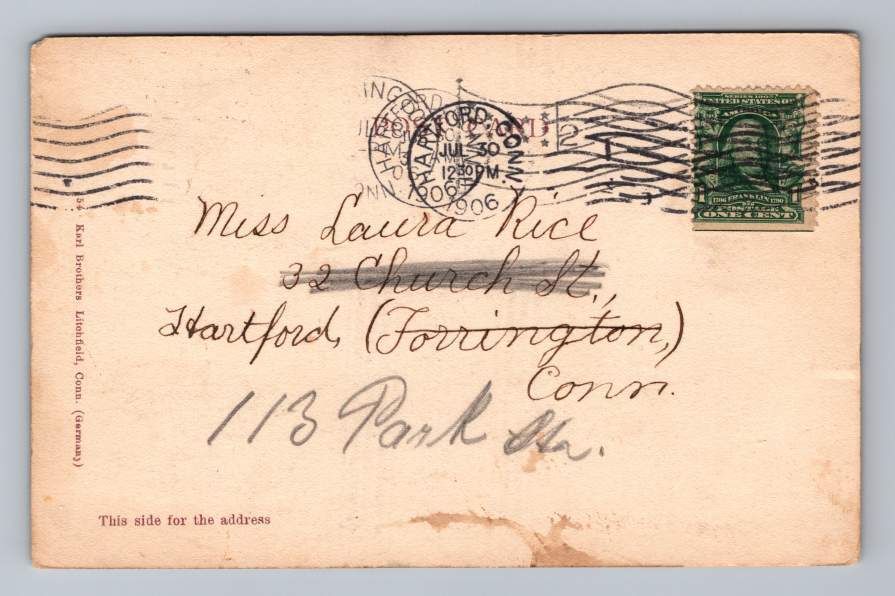 POST CARD
HARTFORD CONN
JUL 30
12 30 PM
1906
1906
2
SERIES 1902
UNITED STATES OF
AMERICA
1706 FRANKLIN 1790
POSTAGE
ONE CENT
Miss Laura Rice
32 Church St.,
Hartford, (Torrington,)
Conn.
113 Park St.
54 Karl Brothers Litchfield, Conn. (Germany)
This side for the address